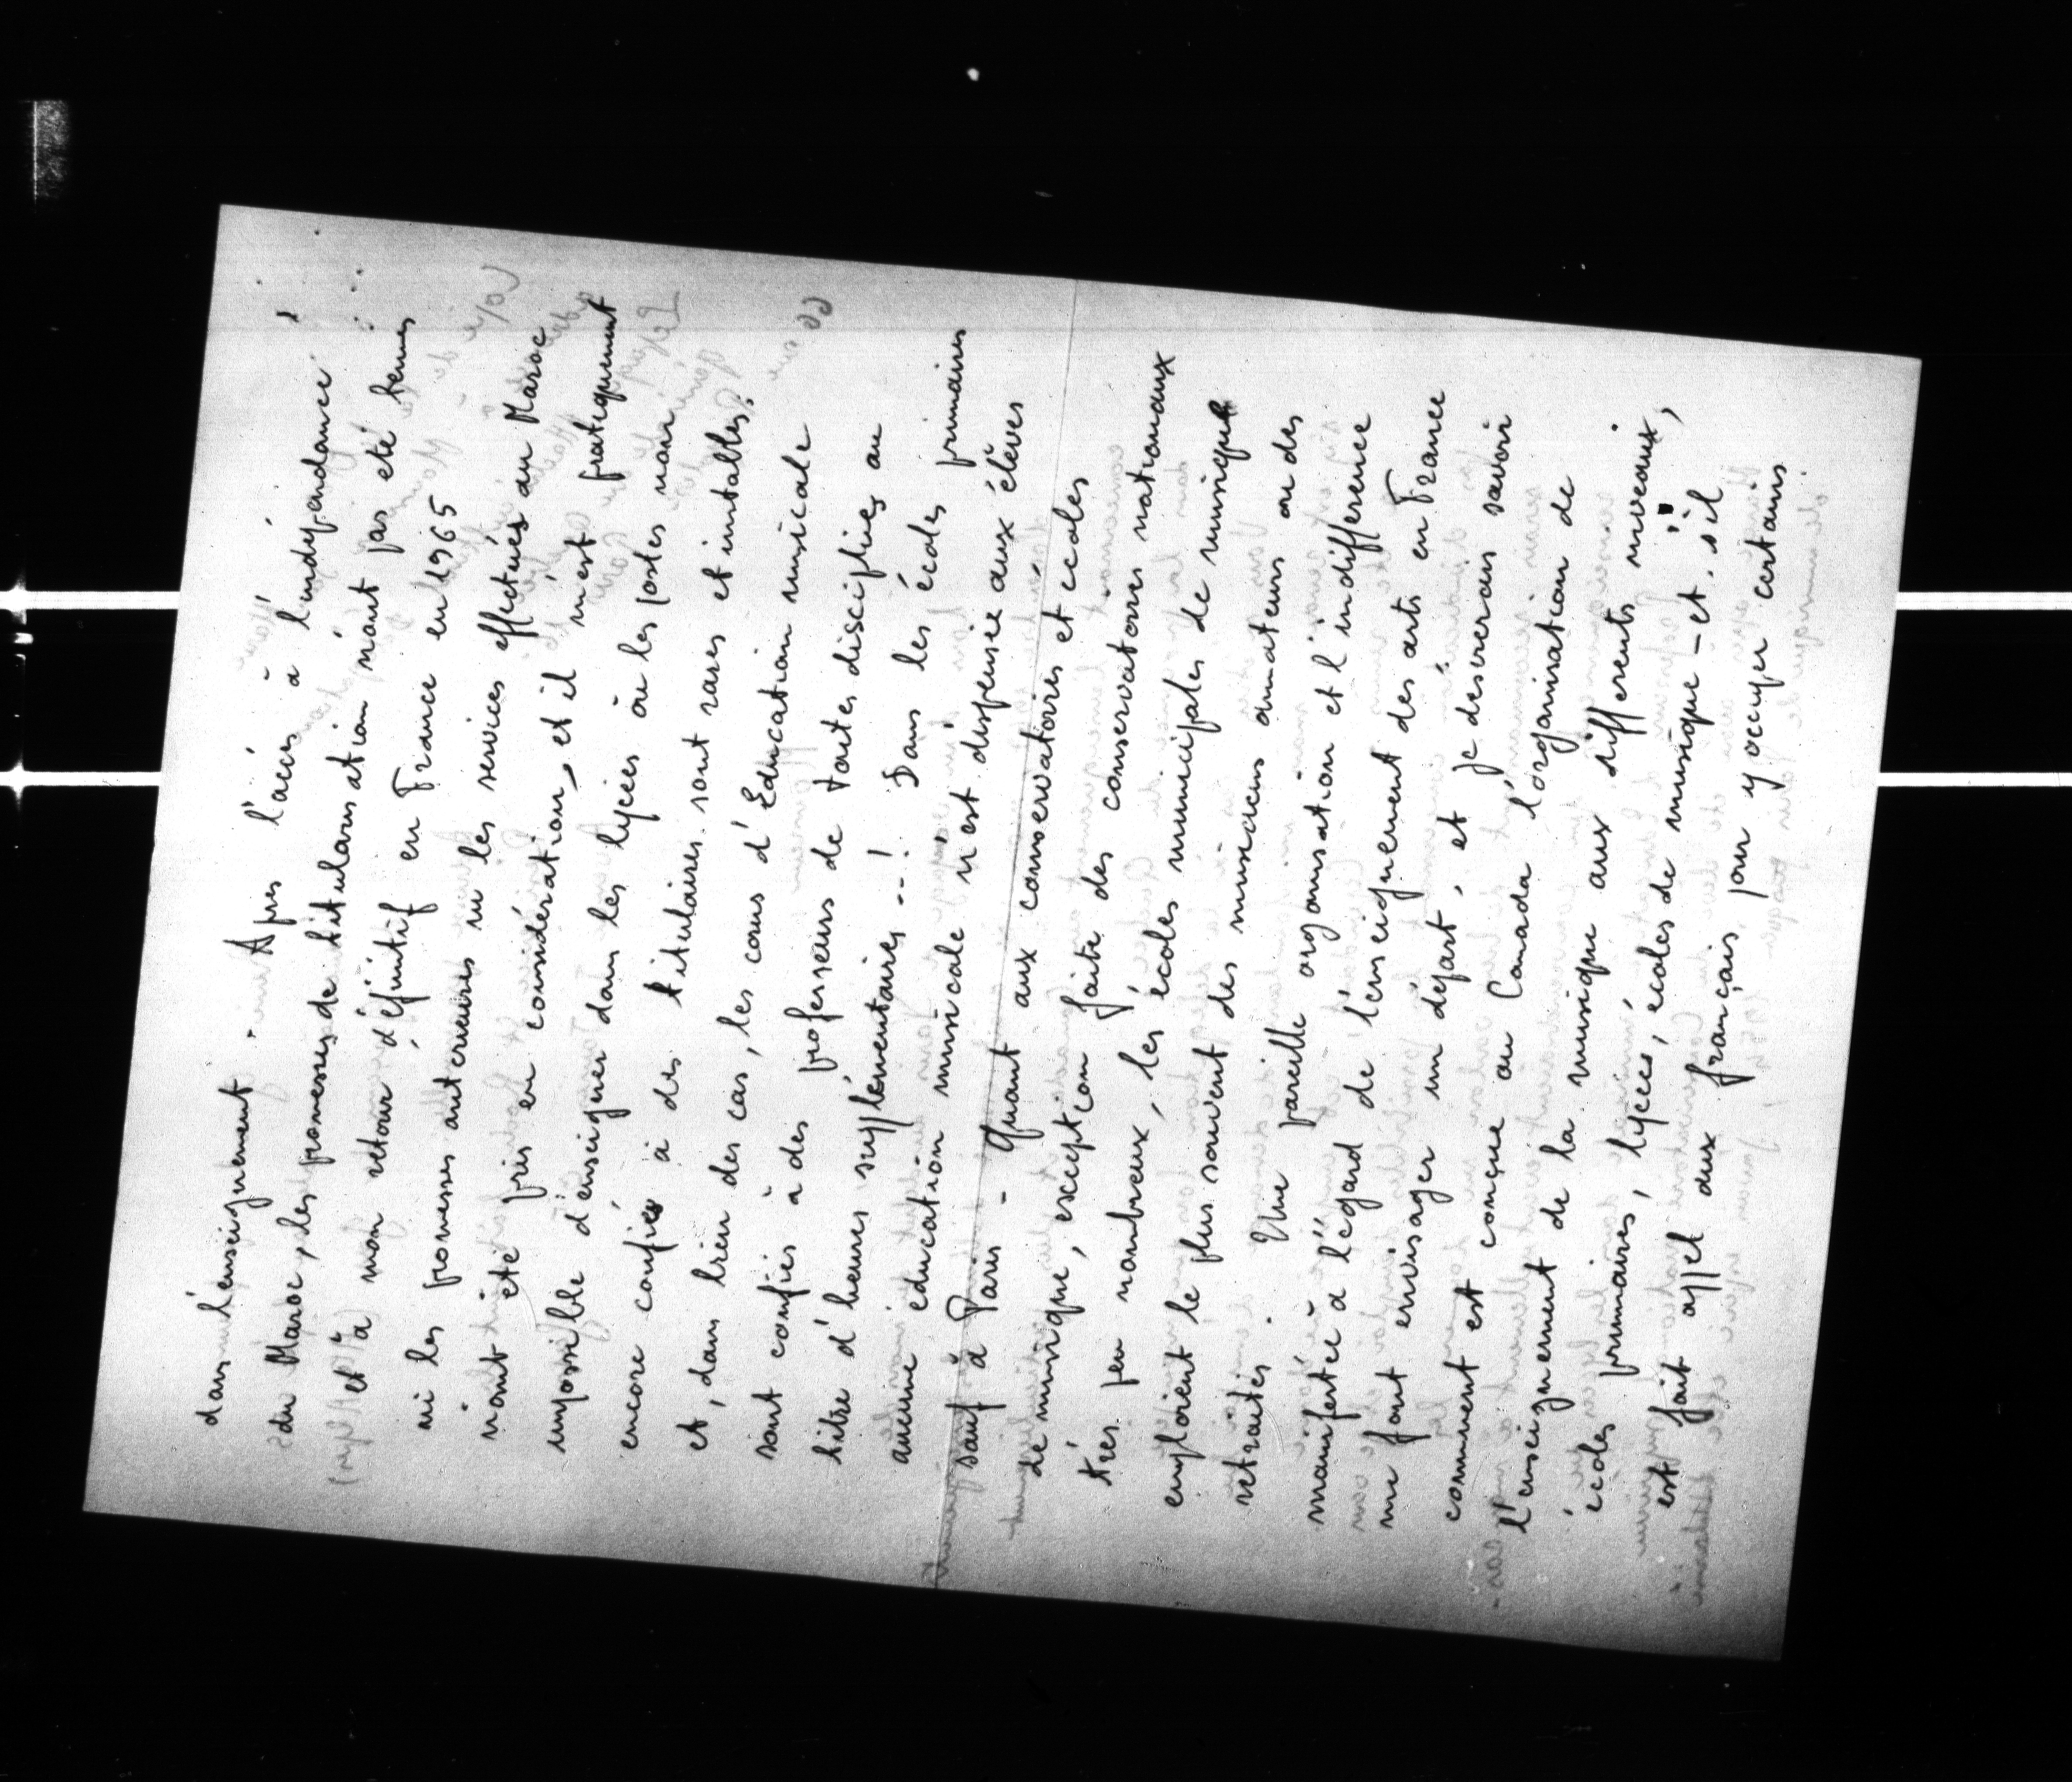 dans l'enseignement. Après l'accès à l'indépendance
du Maroc, les promesses de titularisation n'ont pas été tenues
et à mon retour définitif en France en 1965
ni les promesses antérieures ni les services effectués au Maroc
n'ont été pris en considération, et il m'est pratiquement
impossible d'enseigner dans les lycées où les postes
encore confiés à des titulaires sont rares et instables.
et, dans bien des cas, les cours d'Education musicale
sont confiés à des professeurs de toutes disciplines au
titre d'heures supplémentaires --! Dans les écoles primaires
aucune éducation musicale n'est dispensée aux élèves
sauf à Paris - Quant aux conservatoires et écoles
de musique, exception faite des conservatoires nationaux
très peu nombreux, les écoles municipales de musique
emploient le plus souvent des musiciens amateurs ou des
retraités. Une pareille organisation et l'indifférence
manifestée à l'égard de l'enseignement des arts en France
me font envisager un départ, et je désirerais savoir
comment est conçue au Canada l'organisation de
l'enseignement de la musique aux différents niveaux,
écoles primaires, lycées, écoles de musique - et, s'il
est fait appel aux français pour y occuper certains